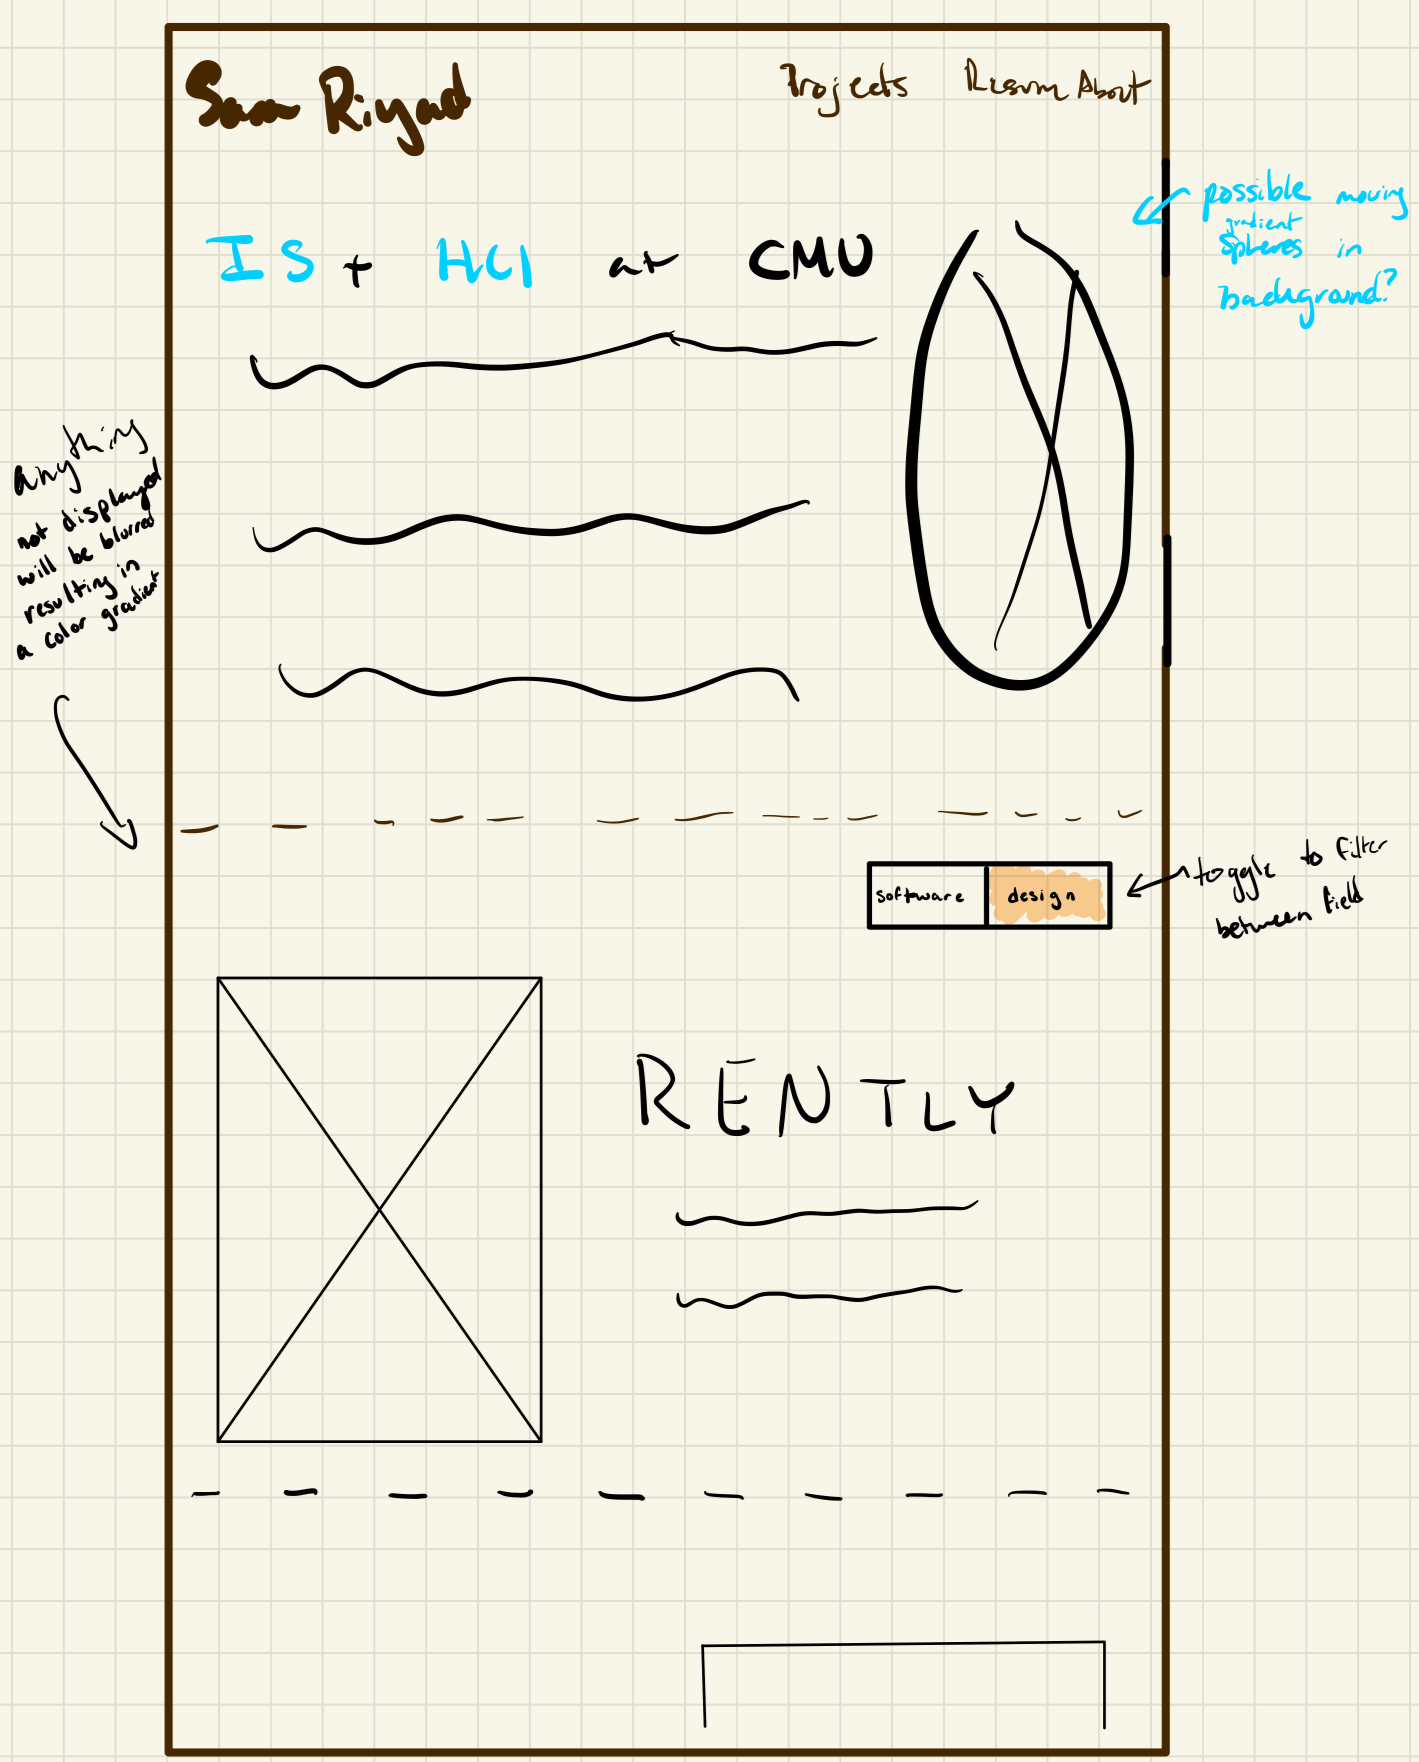 Sam Riyad
Projects Resum About
possible moving
gradient
spheres in
background?
IS + HCI at CMU
anything
not displayed
will be blurred
resulting in
a color gradient
software design
toggle to filter
between field
RENTLY